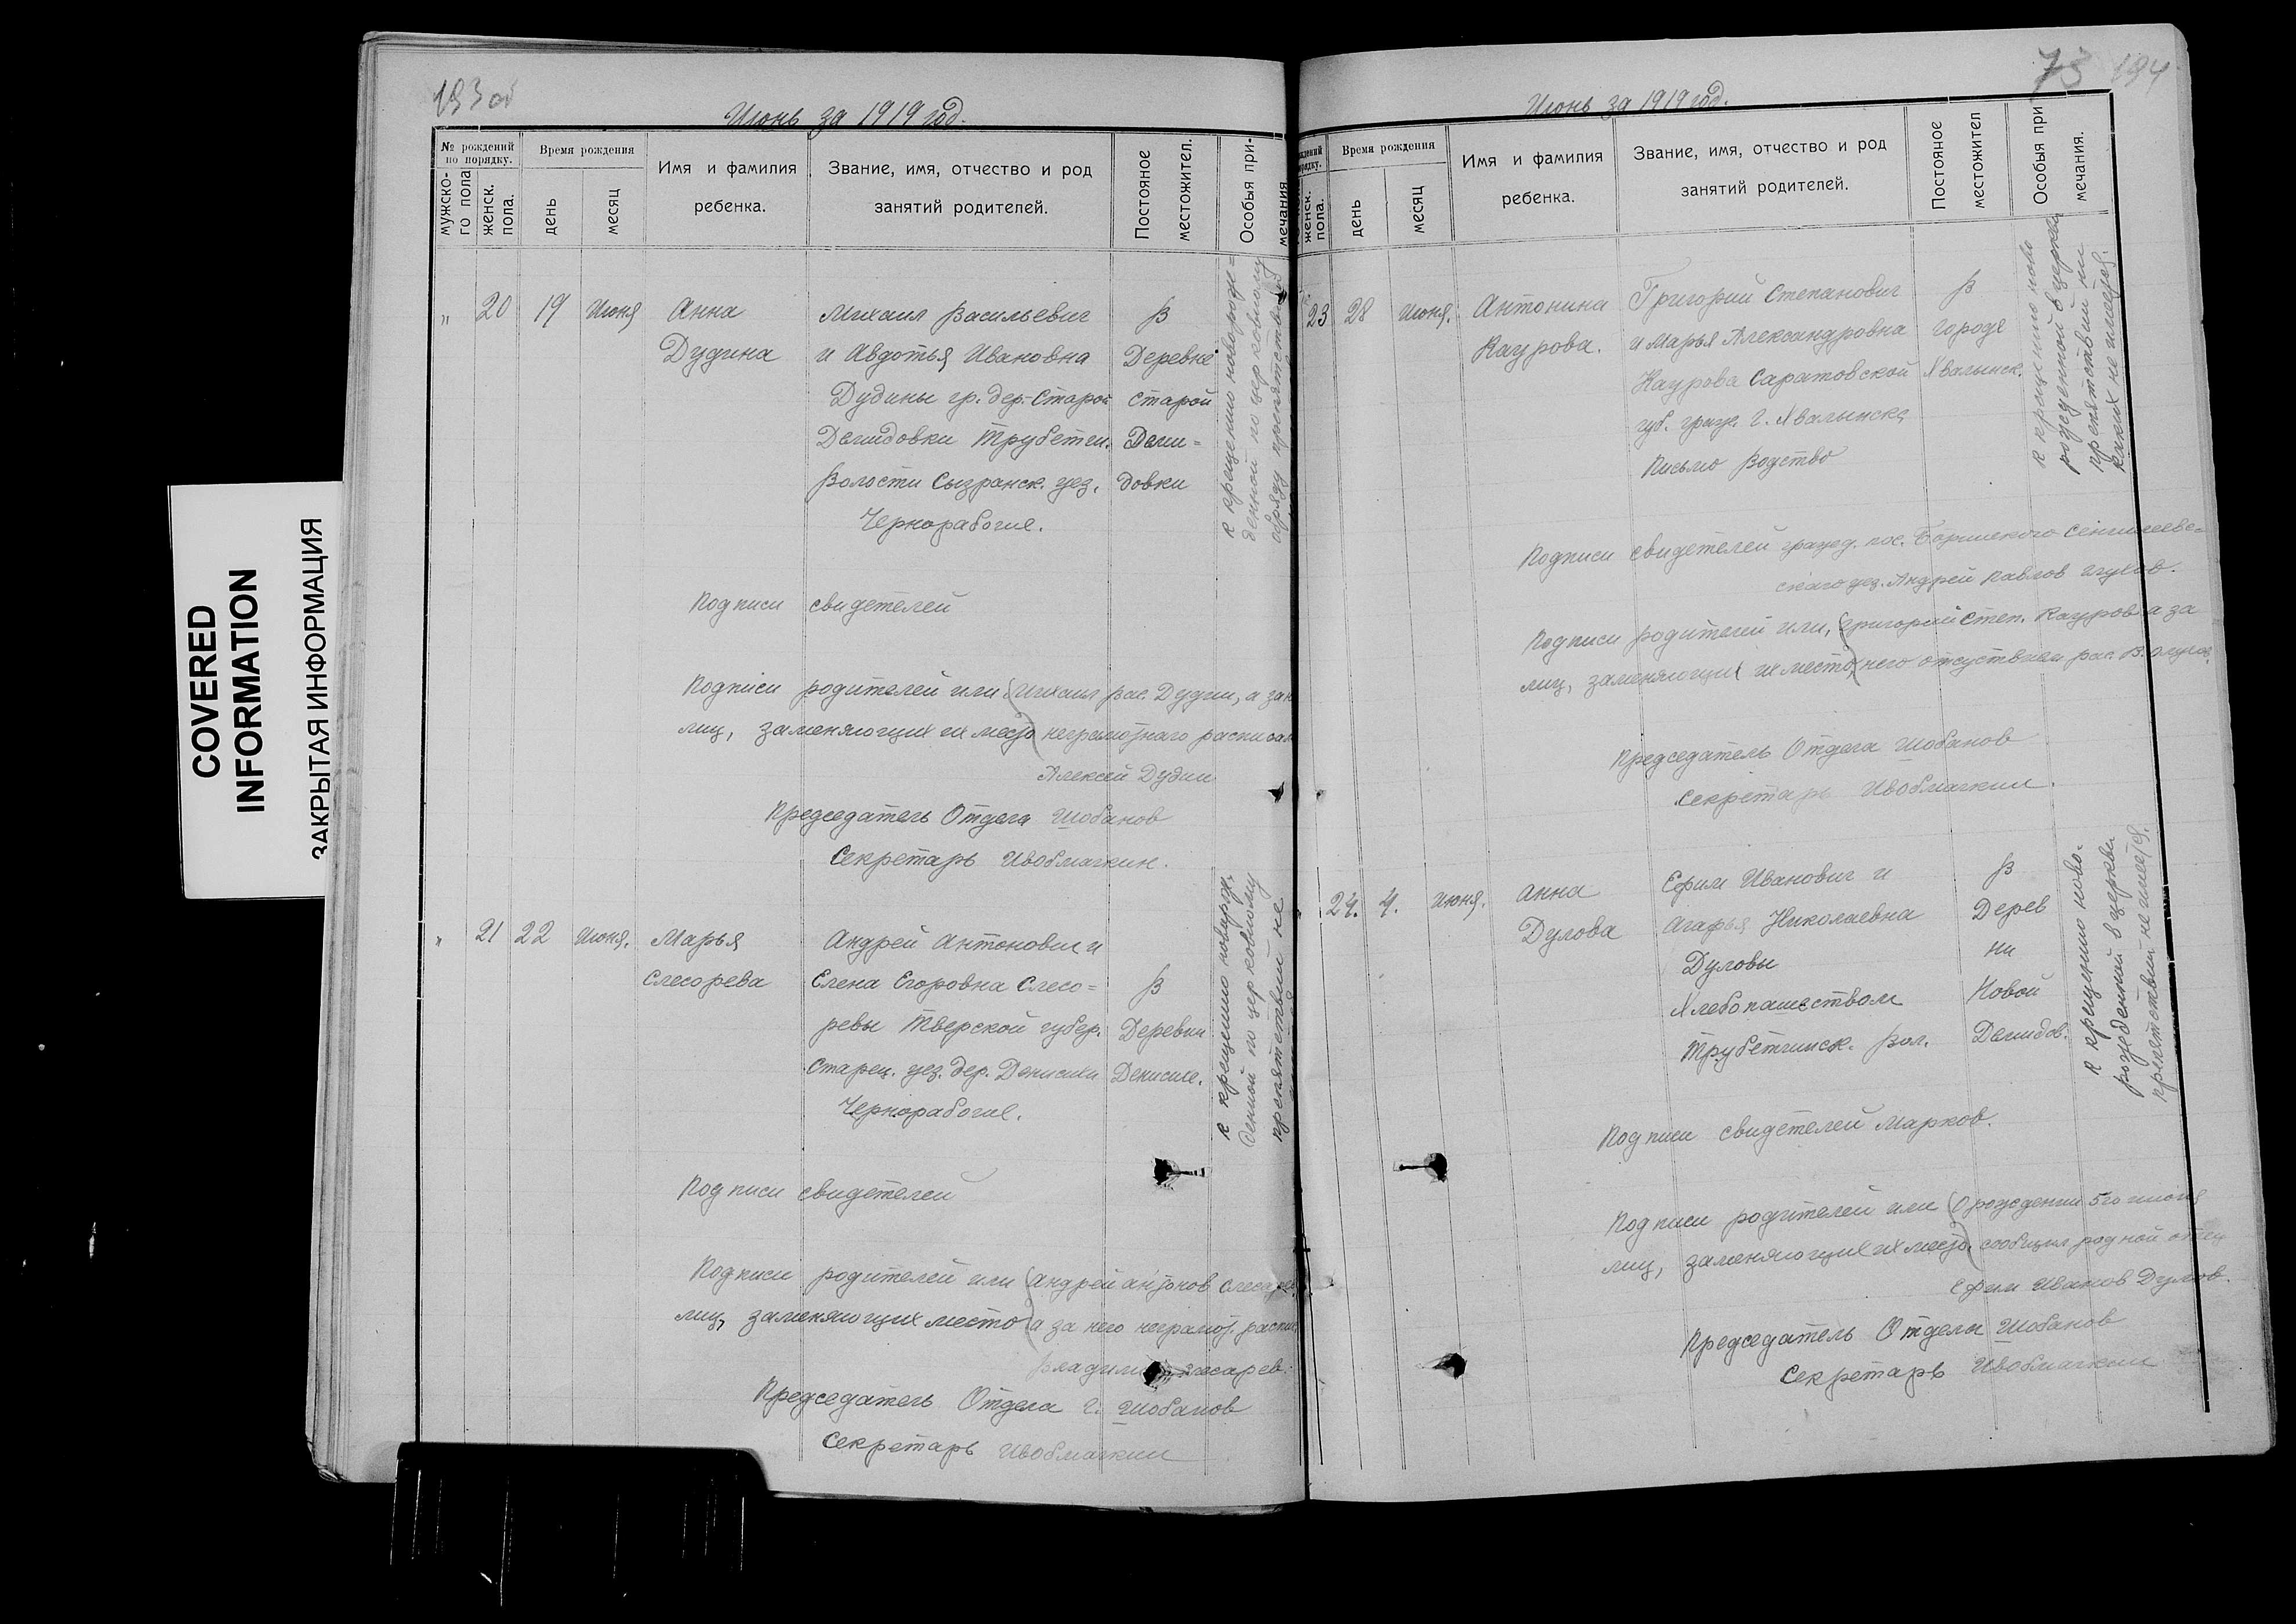 COVERED
INFORMATION
ЗАКРЫТАЯ ИНФОРМАЦИЯ
193 об
Июнь за 1919 год.
№ рождений по порядку.
мужско-го пола
женск. пола.
Время рождения
день
месяц
Имя и фамилия ребенка.
Звание, имя, отчество и род занятий родителей.
Постояное местожител.
Особыя при-мечания
" 20 19 Июня Анна Михаил Васильевич В
Дудина и Авдотья Ивановна Деревне
Дудины гр. дер. Старой Старой
Демидовки Трубетчи. Деми=
Волости Сызранск. уез. довки
Чернорабочие.
К крещению новорожде=
денной по церковному
обряду препятствий
Подписи свидетелей
Подписи родителей или Михаил Вас. Дудин, а за
лиц, заменяющих их место неграмотнаго расписал
Алексей Дудин
Председатель Отдела Шобанов
Секретарь
" 21 22 Июня. Марья Андрей Антонович и
Слесорева Елена Егоровна Слесо= В
ревы Тверской губер. Деревни
Старец. уез. дер. Денисихи Денисихе.
Чернорабочие.
К крещению новорож.
денной по церковному
препятствий не
Подписи свидетелей
Подписи родителей или Андрей Антонов
лиц, заменяющих место а за него неграмот.
Председатель Отдела г. Шобанов
Секретарь
73 194
Июнь за 1919 год.
женск. пола.
Время рождения
день
месяц
Имя и фамилия ребенка.
Звание, имя, отчество и род занятий родителей.
Постояное местожител
Особыя при мечания.
23 28 Июня. Антонина Григорий Степанович В
Каурова. и Марья Александровна городе
Каурова Саратовской Хвалынск.
губ. граж. г. Хвалынска
Письмо Водство
К крещению ново
рожденной в церкви
препятствий ни
каких не имеется.
Подписи свидетелей гражд. пос.
уез. Андрей Павлов
Подписи родителей или, Григорий Степ. Кауров а за
лиц, заменяющих их место, него отсуствием рас.
Председатель Отдела Шобанов
Секретарь
24. 4. Июня. Анна Ефим Иванович и В
Дулова Агафья Николаевна Дерев
Дуловы ни
Хлебопашеством Новой
Трубетчинск. вол. Демидов.
К крещению ново-
рожденной в церкви
препятствий не имеется.
Подписи свидетелей Марков.
Подписи родителей или О рождении 5го июня
лиц, заменяющих их место. сообщил родной отец
Ефим Иванов Дулов.
Председатель Отдела Шобанов
Секретарь